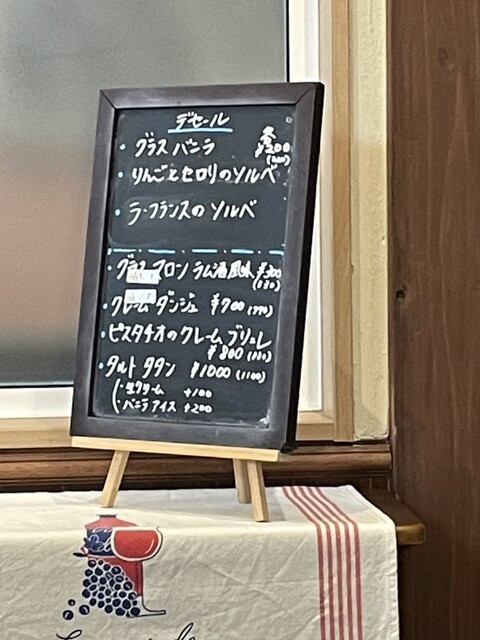 デセール
・グラス バニラ 各 ¥200
・りんごとセロリのソルベ
・ラ・フランスの ソルベ
・グラス マロン ラム酒風味 ¥300
・クレーム ダンジュ ¥700 (770)
・ピスタチオのクレーム ブリュレ
¥800 (880)
・タルト タタン ¥1000 (1100)
(・生クリーム +100
・バニラアイス +200